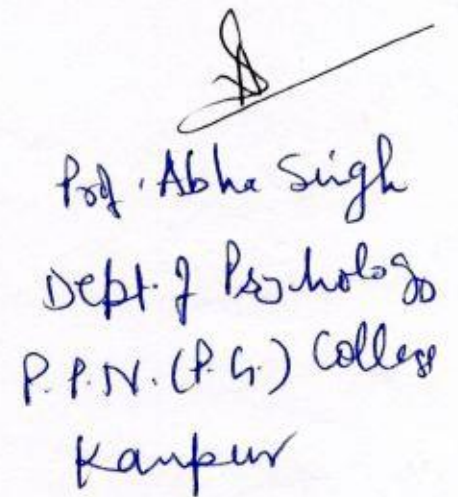 Prof. Abha Singh
Dept. of Psychology
P.P.N. (P.G.) College
Kanpur